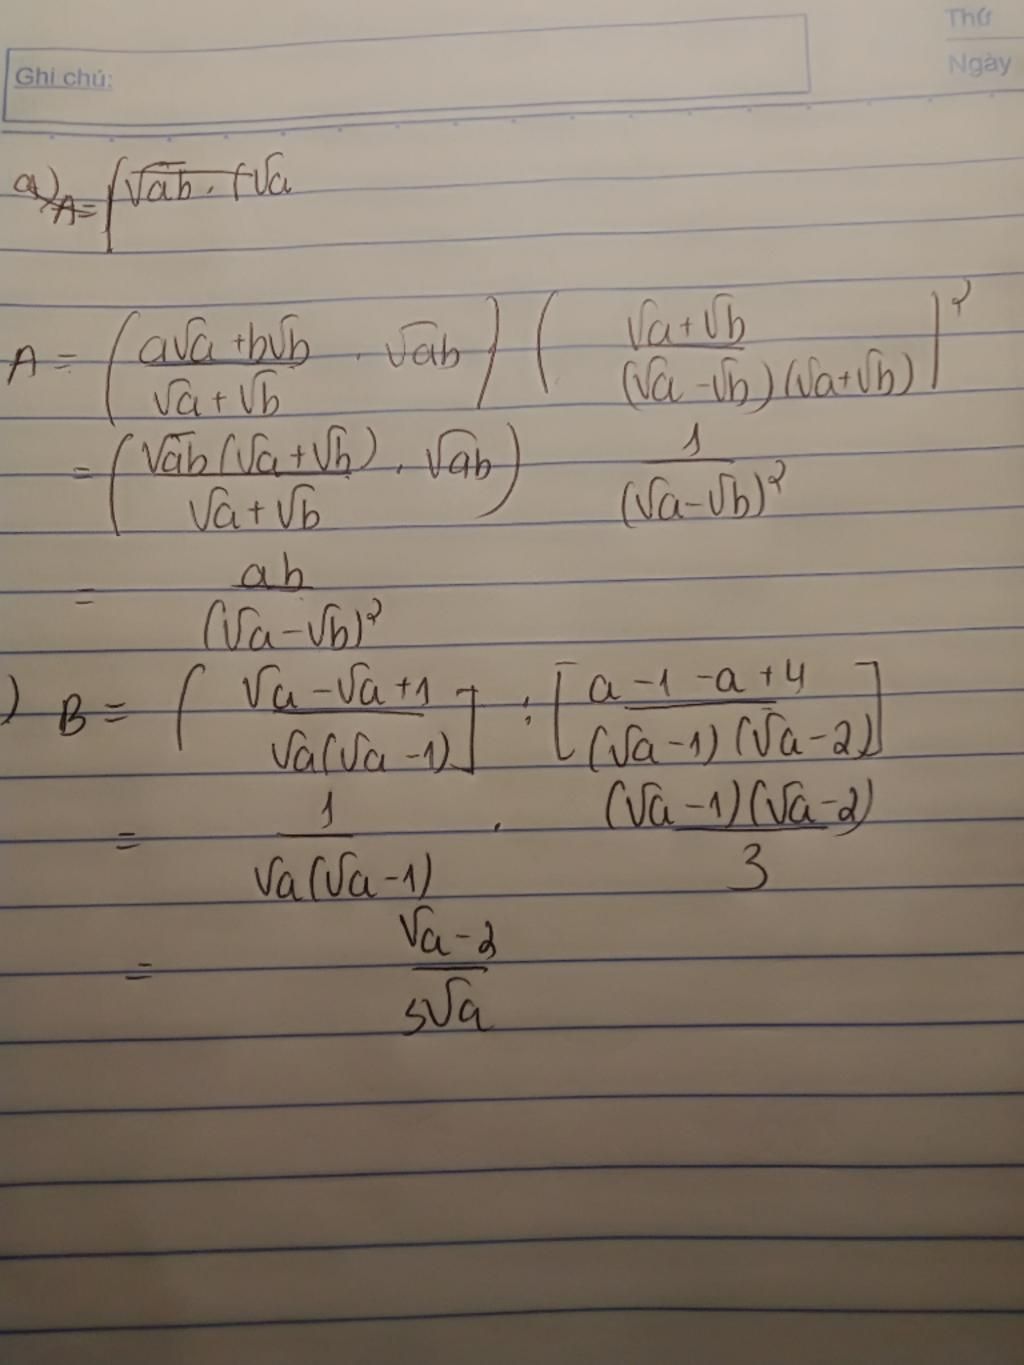 Thứ
Ghi chú:
Ngày
a) A = ( √ab . (√a
A = ( (a√a + b√b)/(√a + √b) . √ab ) ( (√a + √b)/((√a - √b)(√a + √b)) )²
= ( (√ab(√a + √b))/(√a + √b) . √ab ) 1/(√a - √b)²
= ab/(√a - √b)²
) B = [ (√a - √a + 1)/(√a(√a - 1)) ] : [ (a - 1 - a + 4)/((√a - 1)(√a - 2)) ]
= 1/(√a(√a - 1)) . ((√a - 1)(√a - 2))/3
= (√a - 2)/(3√a)